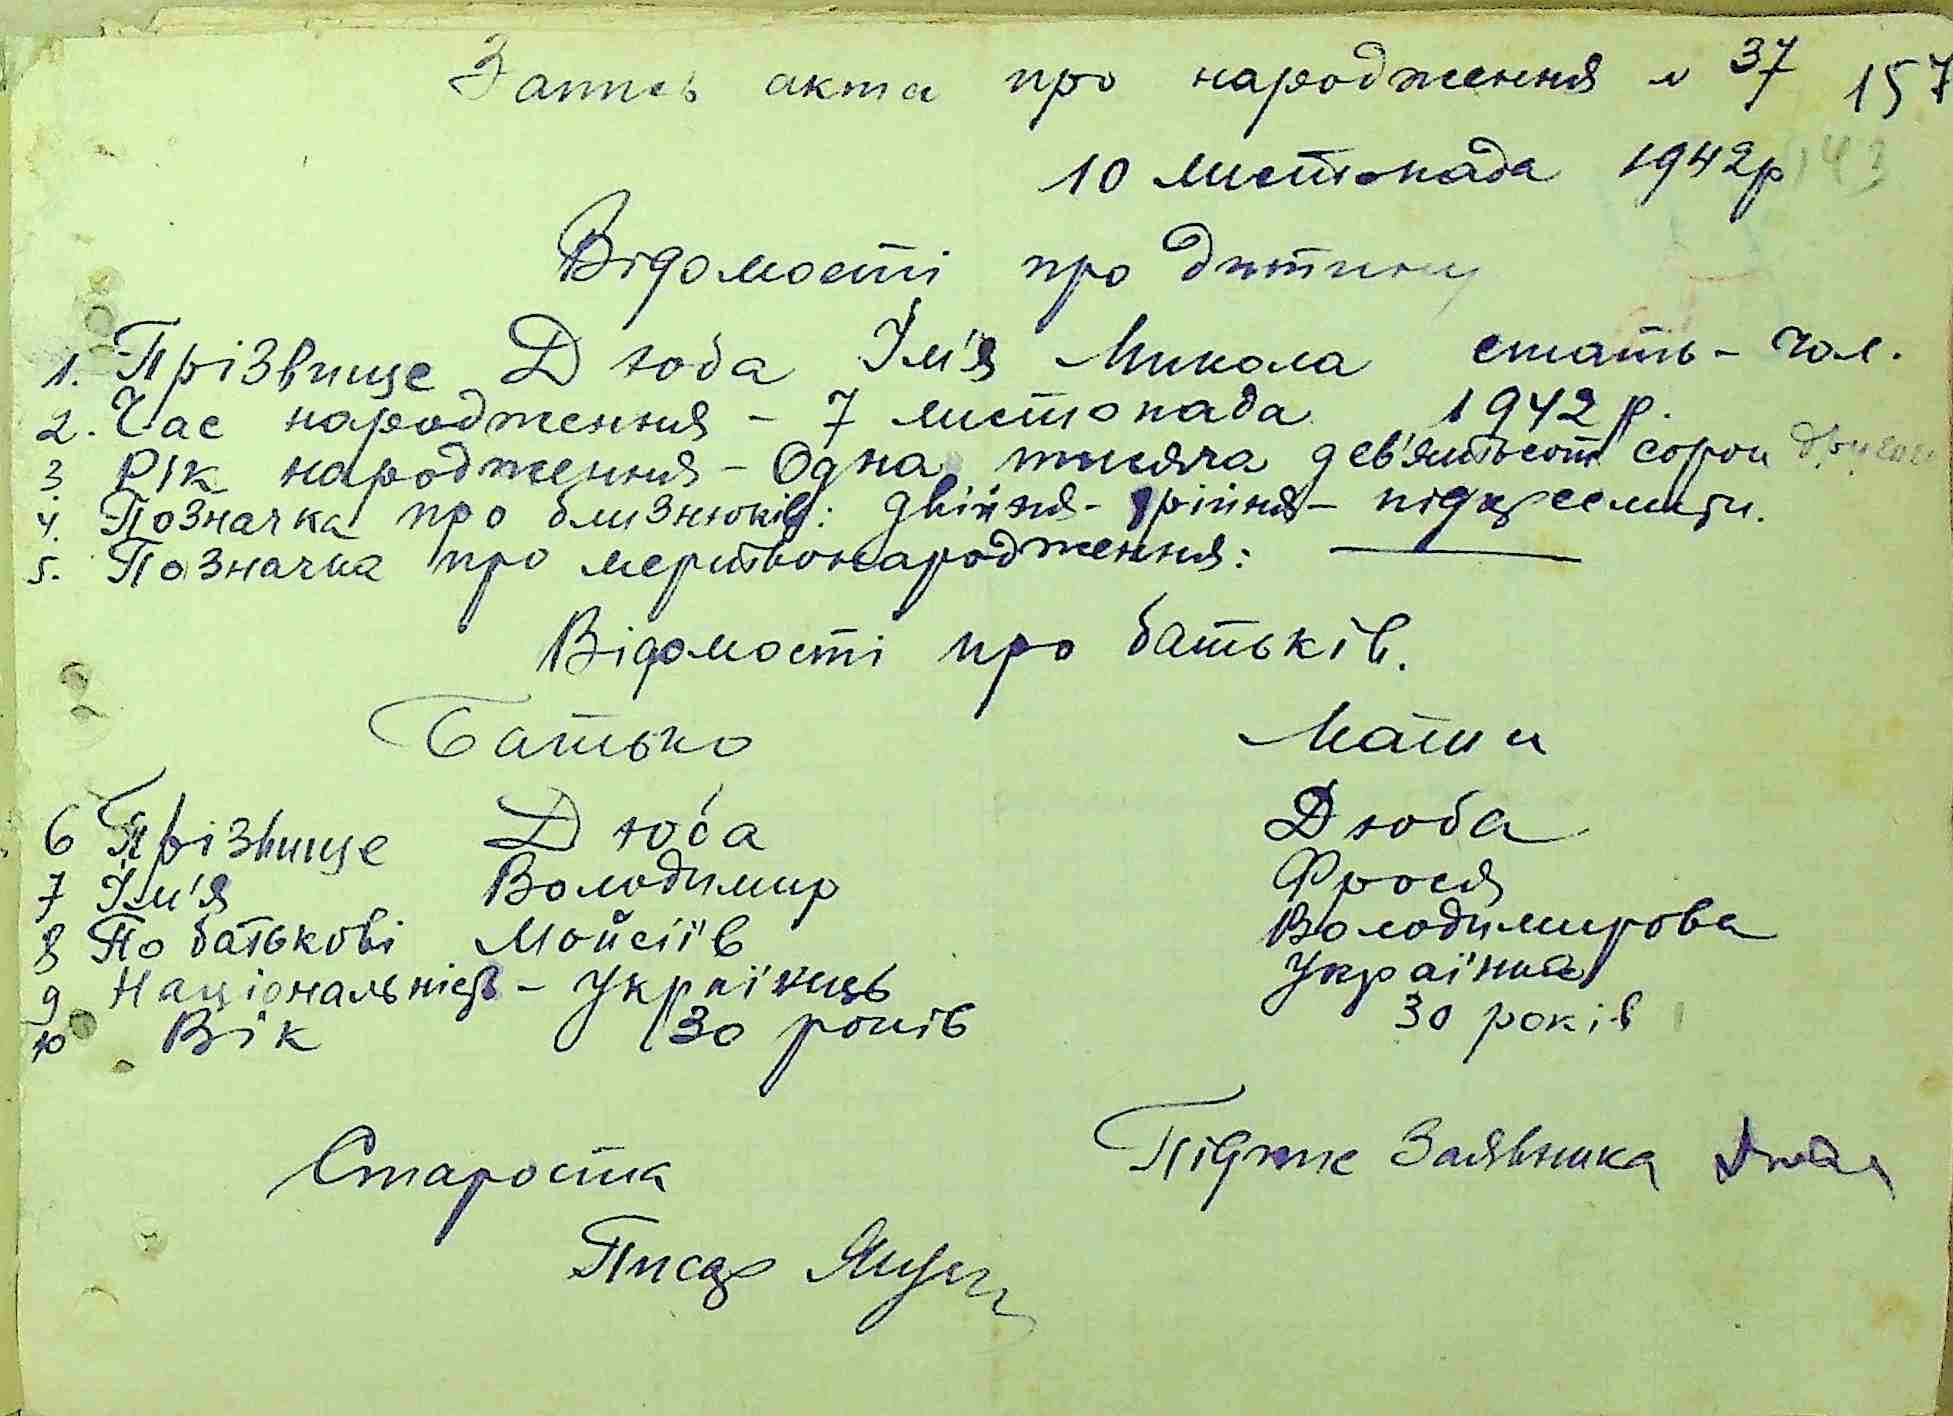 Запись акта про народження № 37 157
10 листопада 1942р
Відомості про дитину
1. Прізвище Дзюба Ім'я Микола стать - Чол.
2. Час народження - 7 листопада 1942 р.
3 Рік народження - Одна тисяча дев'ятьсот сорок другого
4. Позначка про близнюків: двійня - трійня - підкреслити.
5. Позначка про мертвонародження: ———
Відомості про батьків.
Батько Мати
6 Прізвище Дзюба Дзюба
7 Ім'я Володимир Фрося
8 По батькові Мойсіїв Володимирова
9 Національність - Українець Українка
10 Вік 30 років 30 років
Староста Підпис Заявника
Писар